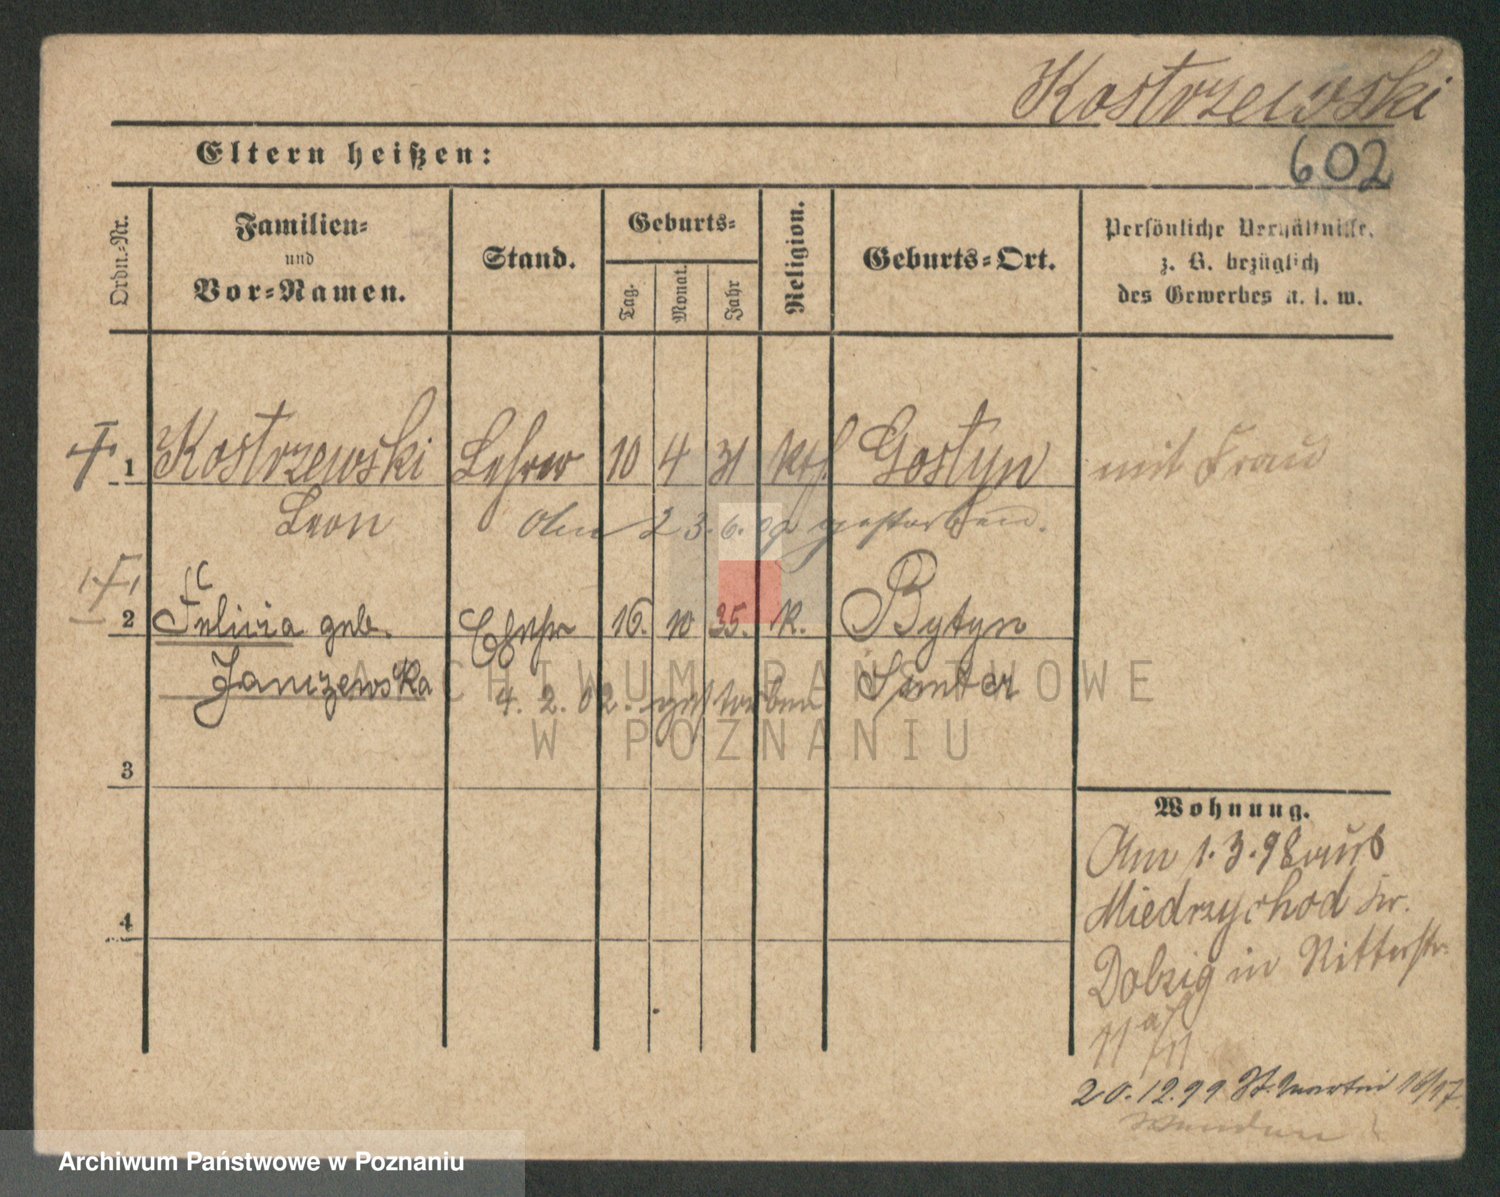 Kostrzewski
602
Eltern heißen:
Ordn.-Nr.
Familien-
und
Vor-Namen.
Stand.
Geburts-
Tag.
Monat.
Jahr
Religion.
Geburts-Ort.
Persönliche Verhältnisse,
z. B. bezüglich
des Gewerbes u. s. w.
1 Kostrzewski Lehrer 10 4 31 kth. Gostyn mit Frau
Leon Am 23.6.09 gestorben.
2 Felicia geb. 16. 10 35. k. Bytyn
Janiczewska 4. 2. 02. gestorben Samter
3
4
Wohnung.
Am 1.3.98 aus
Miedzychod Kr.
Dolzig in Ritterstr.
11 a/11
20.12.99 St. Martin 16/17
ARCHIWUM PAŃSTWOWE
W POZNANIU
Archiwum Państwowe w Poznaniu